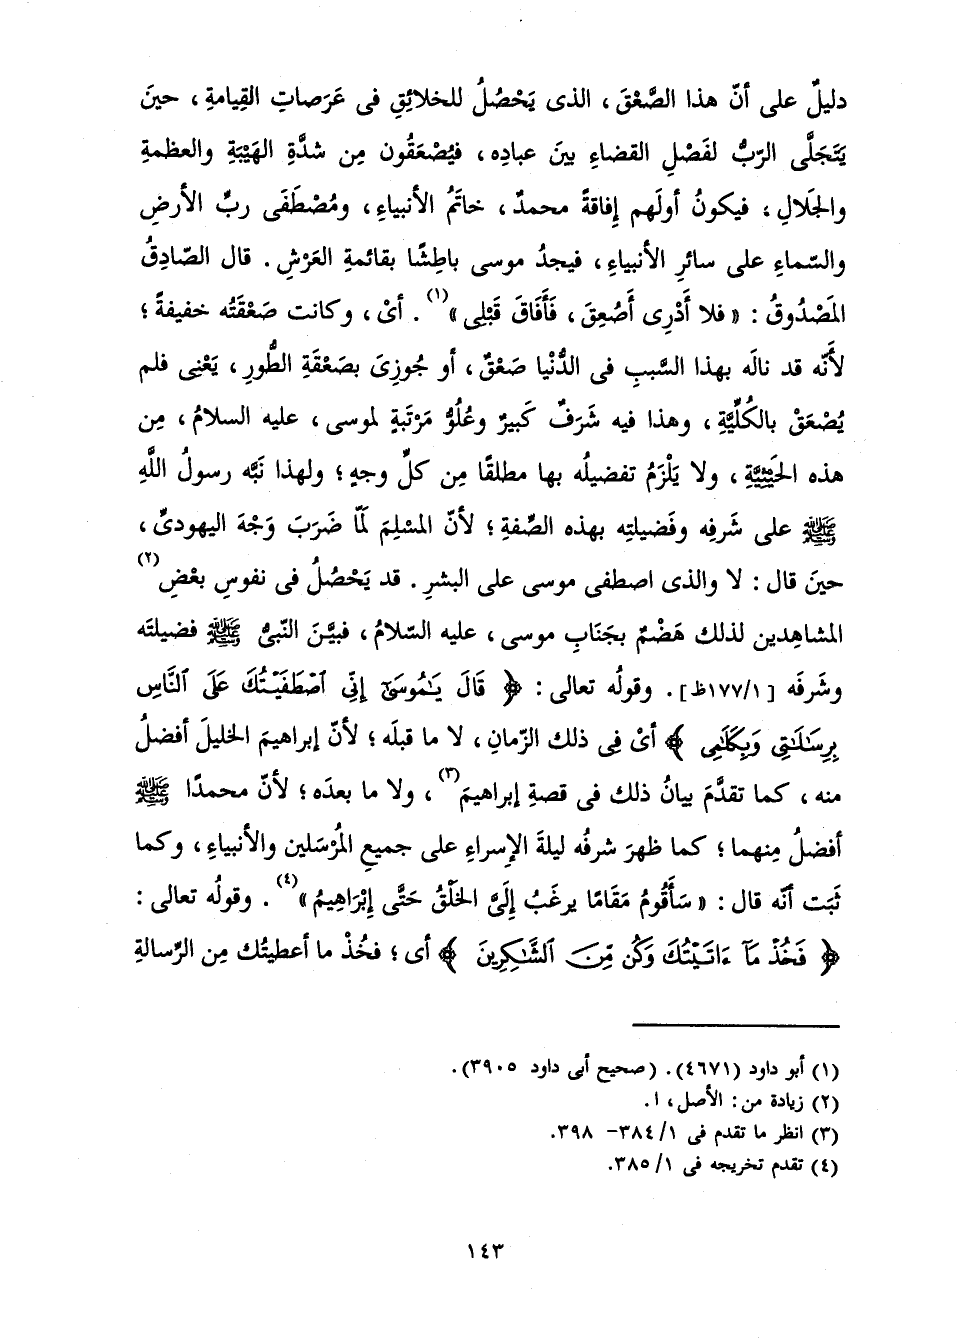 دليلٌ على أنّ هذا الصَّعْقَ، الذى يَحْصُلُ للخلائِقِ فى عَرَصاتِ القِيامةِ، حينَ
يَتَجَلَّى الرّبُّ لفَصْلِ القضاءِ بينَ عبادِه، فيُصْعَقُون مِن شدَّةِ الهَيْبَةِ والعظمةِ
والجَلالِ، فيكونُ أولَهم إفاقةً محمدٌ، خاتَمُ الأنبياءِ، ومُصْطَفَى ربِّ الأرضِ
والسّماءِ على سائرِ الأنبياءِ، فيجدُ موسى باطِشًا بقائمةِ العَرْشِ. قال الصّادِقُ
المَصْدُوقُ: «فلا أَدْرِى أَصُعِقَ، فَأَفَاقَ قَبْلِى»(١). أىْ، وكانت صَعْقَتُه خفيفةً؛
لأَنّه قد نالَه بهذا السَّببِ فى الدُّنْيا صَعْقٌ، أو جُوزِىَ بصَعْقَةِ الطُّورِ، يَعْنِى فلم
يُصْعَقْ بالكُلِّيَّةِ، وهذا فيه شَرَفٌ كَبيرٌ وعُلُوُّ مَرْتَبةٍ لموسى، عليه السلامُ، مِن
هذه الحَيْثِيَّةِ، ولا يَلْزَمُ تفضيلُه بها مطلقًا مِن كلِّ وجهٍ؛ ولهذا نَبَّه رسولُ اللَّهِ
ﷺ على شَرفِه وفَضيلتِه بهذه الصِّفةِ؛ لأنّ المسْلِمَ لمّا ضَرَبَ وَجْهَ اليهودىِّ،
حينَ قال: لا والذى اصطفى موسى على البشرِ. قد يَحْصُلُ فى نفوسِ بعْضِ(٢)
المشاهِدين لذلك هَضْمٌ بجَنَابِ موسى، عليه السّلامُ، فبيَّنَ النّبىُّ ﷺ فضيلتَه
وشَرفَه [١٧٧/١ظ]. وقولُه تعالى: ﴿ قَالَ يَٰمُوسَىٰٓ إِنِّى ٱصْطَفَيْتُكَ عَلَى ٱلنَّاسِ
بِرِسَٰلَٰتِى وَبِكَلَٰمِى ﴾ أىْ فى ذلك الزّمانِ، لا ما قبلَه؛ لأنّ إبراهيمَ الخليلَ أفضلُ
منه، كما تقدَّمَ بيانُ ذلك فى قصةِ إبراهيمَ(٣)، ولا ما بعدَه؛ لأنّ محمدًا ﷺ
أفضلُ مِنهما؛ كما ظهرَ شرفُه ليلةَ الإسراءِ على جميعِ المُرْسَلين والأنبياءِ، وكما
ثَبَت أنّه قال: «سَأَقُومُ مَقَامًا يرغَبُ إِلَىَّ الخَلْقُ حَتَّى إِبْرَاهِيمُ»(٤). وقولُه تعالى:
﴿ فَخُذْ مَآ ءَاتَيْتُكَ وَكُن مِّنَ ٱلشَّٰكِرِينَ ﴾ أى؛ فخُذْ ما أعطيتُك مِن الرِّسالةِ
(١) أبو داود (٤٦٧١). (صحيح أبى داود ٣٩٠٥).
(٢) زيادة من: الأصل، ا.
(٣) انظر ما تقدم فى ٣٨٤/١- ٣٩٨.
(٤) تقدم تخريجه فى ٣٨٥/١.
١٤٣